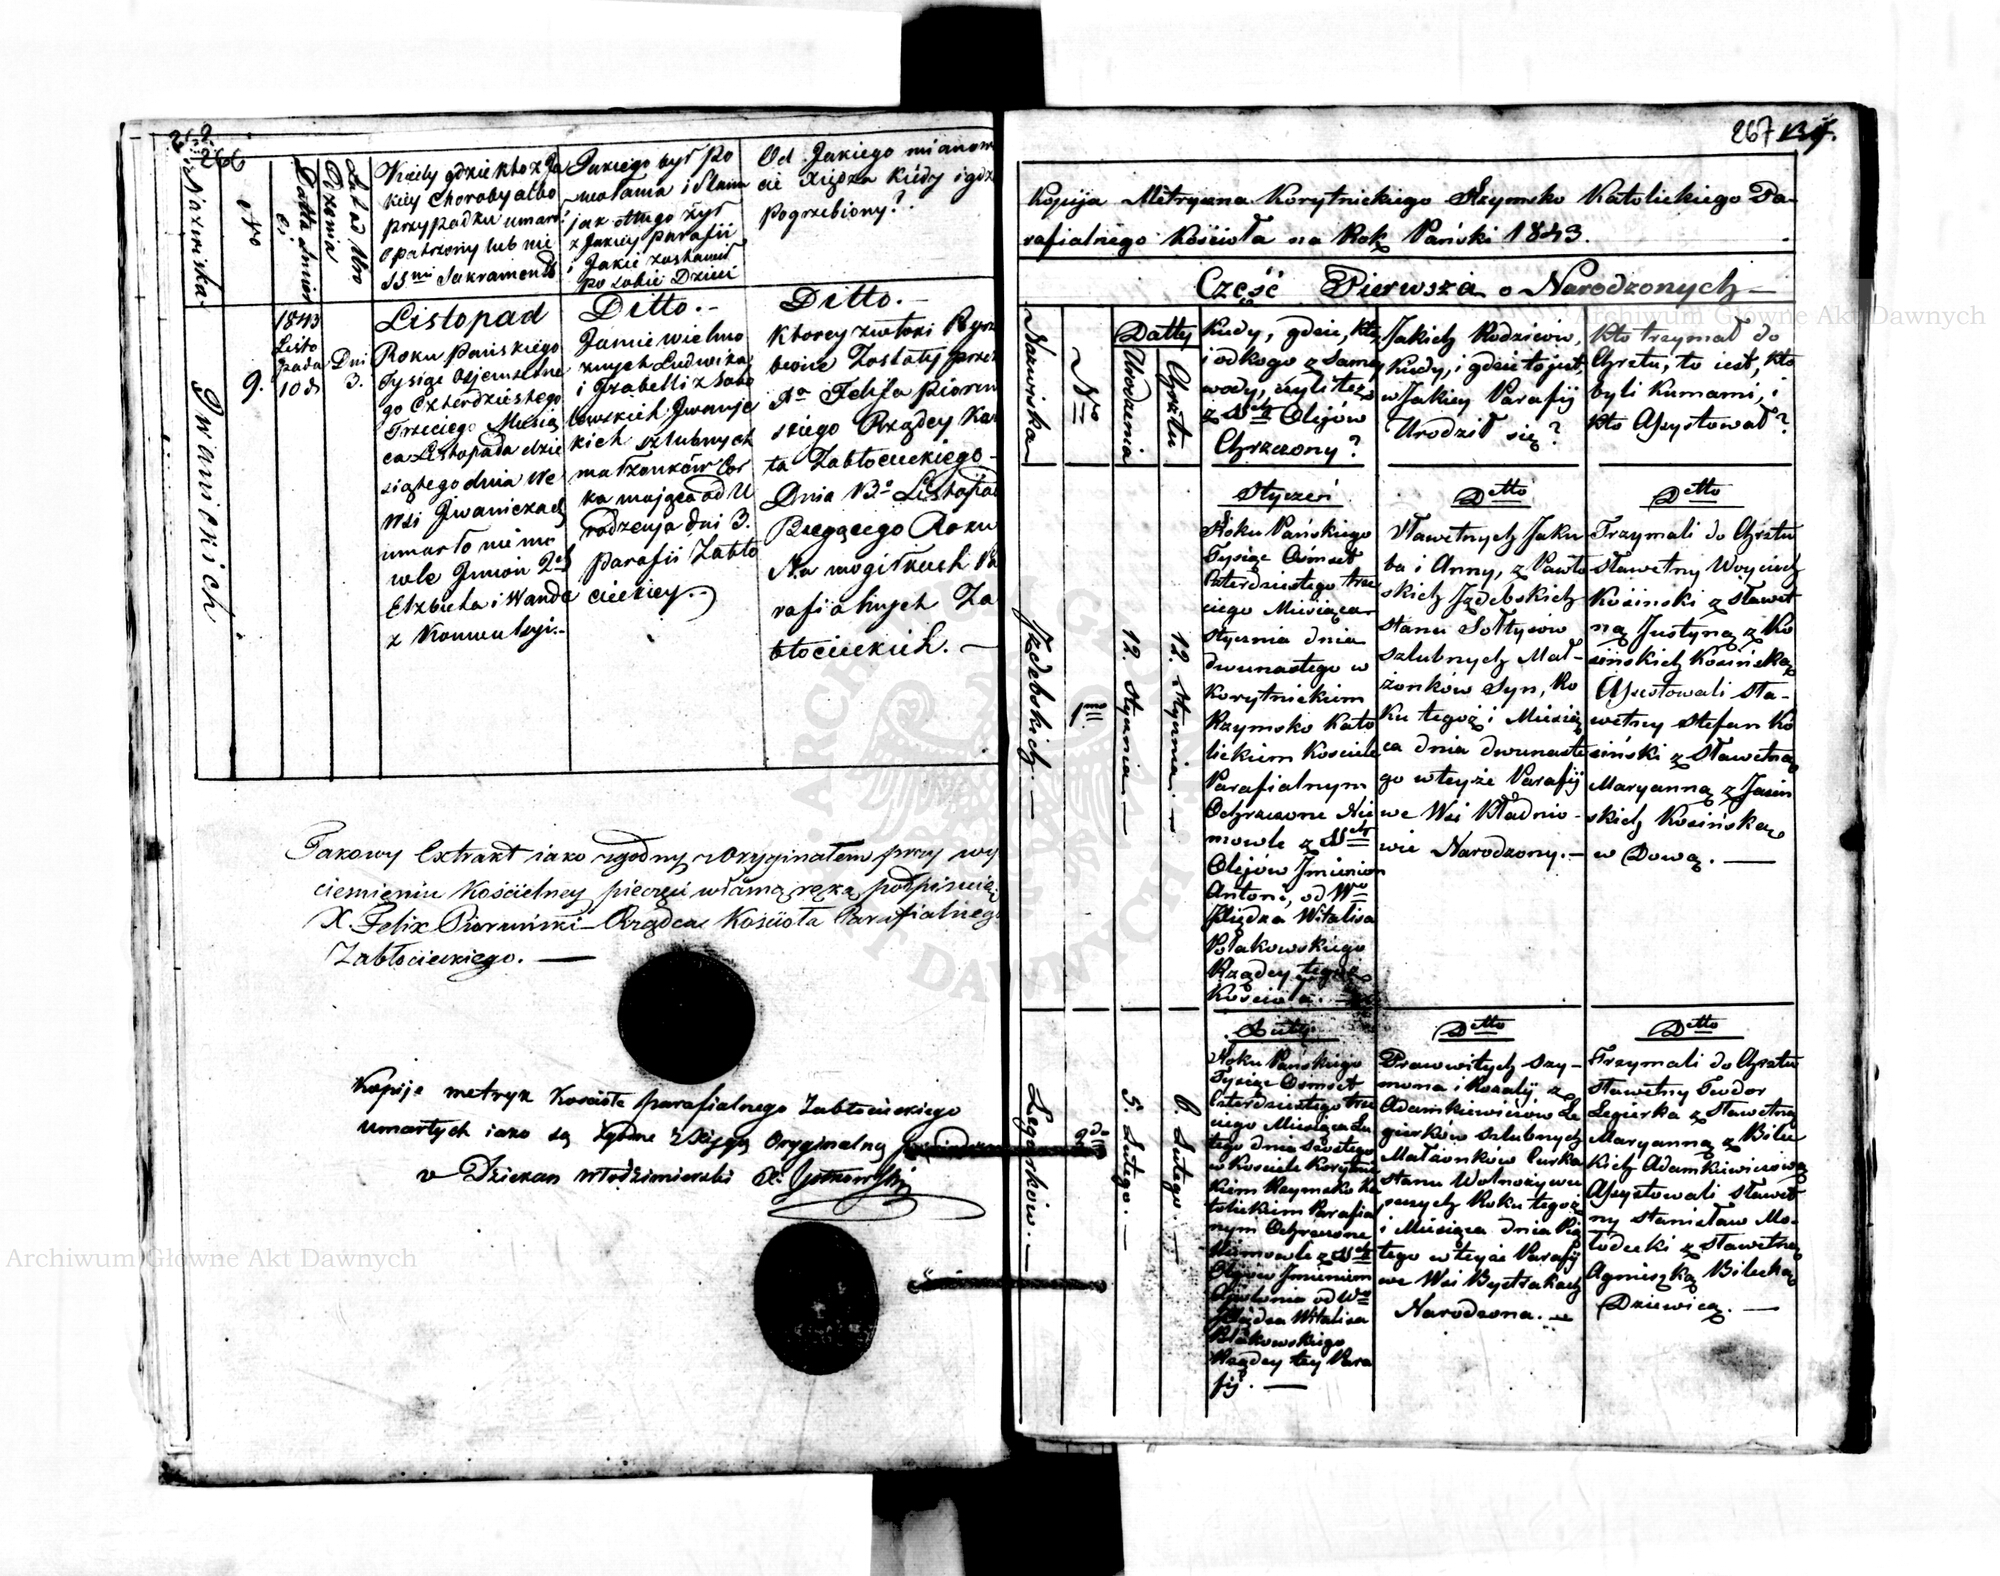 266
Nazwiska.
No
Datta Śmier
ci
Lat od Uro
dzenia
Kiedy gdzie kto z ja
kiey choroby albo
przypadku umarł?
opatrzony lub nie
SSmi Sakramenta
Jakiego był po
wołania i Stanu
jak długo żył
z Jakiey parafii
i Jakie zostawił
po sobie Dzieci
Od Jakiego mianowi
cie Xiędza kiedy i gdz
Pogrzebiony?
Iwanickich
9.
1843
Listo
pada
10 d.
Dni
3.
Listopad
Roku Pańskiego
Tysiąc Osiemset
go Czterdziestego
Trzeciego Miesią
ca Listopada dzie
siątego dnia we
Wsi Iwaniczach
umarło niemo
wle Imion 2ch
Elżbieta i Wanda
z Konwulsyi.-
Ditto.-
Jaśnie wielmo
żnych Ludwika
i Izabelli z Sobo
lewskich Iwanic
kich szlubnych
małżonków Cor
ka mająca od U
rodzenia dni 3.
Parafii Zabło
cieckiey..
Ditto.-
Ktorey zwłoki
Zostały prze
Felixa Pioruń
skiego Rządcy Ko
ła Zabłocieckiego
Dnia 13o Listopad
Bieżącego Roku
Na mogiłkach Pa
rafialnych Za
błocieckich. —
Takowy Extrakt iako zgodny z Oryginałem przy wy
ciśnieniu Kościelney pieczęci własną ręką podpisuię
X. Felix Pioruński Rządca Kościoła Parafialnego
Zabłocieckiego. —
Kopije metryk Kościoła parafialnego Zabłocieckiego
umarłych iako są zgodne z Xięgą Oryginalną
v Dziekan Włodzimierski X.
267
Kopija Metryczna Korytnickiego Rzymsko Katolickiego Pa-
rafialnego Kościoła na Rok Pański 1843.
Część Pierwsza o Narodzonych —
Nazwiska
No
Datty
Urodzenia
Chrztu
Kiedy, gdzie, kto,
i od kogo z Samey
wody, czyli też
z SSch Olejów
Chrzczony?
Jakich Rodziców,
kiedy, i gdzie to jest,
w Jakiey Parafij
Urodził się?
Kto trzymał do
Chrztu, to iest, kto
byli Kumami, i
kto Assystował?
Jzdebskich —
1mo
12. Stycznia —
12. Stycznia. —
Styczeń
Roku Pańskiego
Tysiąc Ośmset
Czterdziestego trze
ciego Miesiąca
Stycznia dnia
dwunastego w
Korytnickim
Rzymsko Kato
lickim Kościele
Parafialnym
Ochrzczone Nie
mowle z SSch
Olejów Jmieniem
Antoni, od Wo
Xiędza Witalisa
Połakowskiego
Rządcy tegoż
Kościoła. —
Ditto
Sławetnych Jaku
ba i Anny, z Pawło
skich Jzdebskich
stanu Sołtysów
szlubnych Mał-
żonków Syn, Ro
ku tegoż i Miesią
ca dnia dwunaste
go w teyże Parafij
we Wsi Kładnio-
wie Narodzony. —
Ditto
Trzymali do Chrztu
Sławetny Woyciech
Kosiński z Sławet
ną Justyną z Ko
sińskich Kosińską
Assystowali Sła-
wetney Stefan Ko
siński z Sławetną
Maryanną z Jasiń
skich Kosińską
w Dową. —
Legierków. —
2do
5. Lutego. —
6. Lutego. —
Luty
Roku Pańskiego
Tysiąc Ośmset
Czterdziestego trze
ciego Miesiąca Lu
tego dnia szóstego
w Kościele Korytnic
kim Rzymsko Ka
tolickim Parafial
nym Ochrzczone
Niemowle z SSch
Olejów Jmieniem
Apolonia od Wo
Xiędza Witalisa
Połakowskiego
Rządcy tey Para
fij. —
Ditto
Prawowitych Szy-
mona i Rozalij, z
Adamkiewiczow Le
gierków szlubnych
Małżonków Curka
stanu Wolnożywu
jących Roku tegoż
i Miesiąca dnia Pią
tego w teyże Parafij
we Wsi Bystrakach
Narodzona. —
Ditto
Trzymali do Chrztu
Sławetny Teodor
Legierka z Sławetną
Maryanną z Bilec
kich Adamkiewiczową
Assystowali Sławet
ny Stanisław Mo-
łodecki z Sławetną
Agnieszką Bilecką
Dziewicą. —
Archiwum Główne Akt Dawnych
Archiwum Główne Akt Dawnych